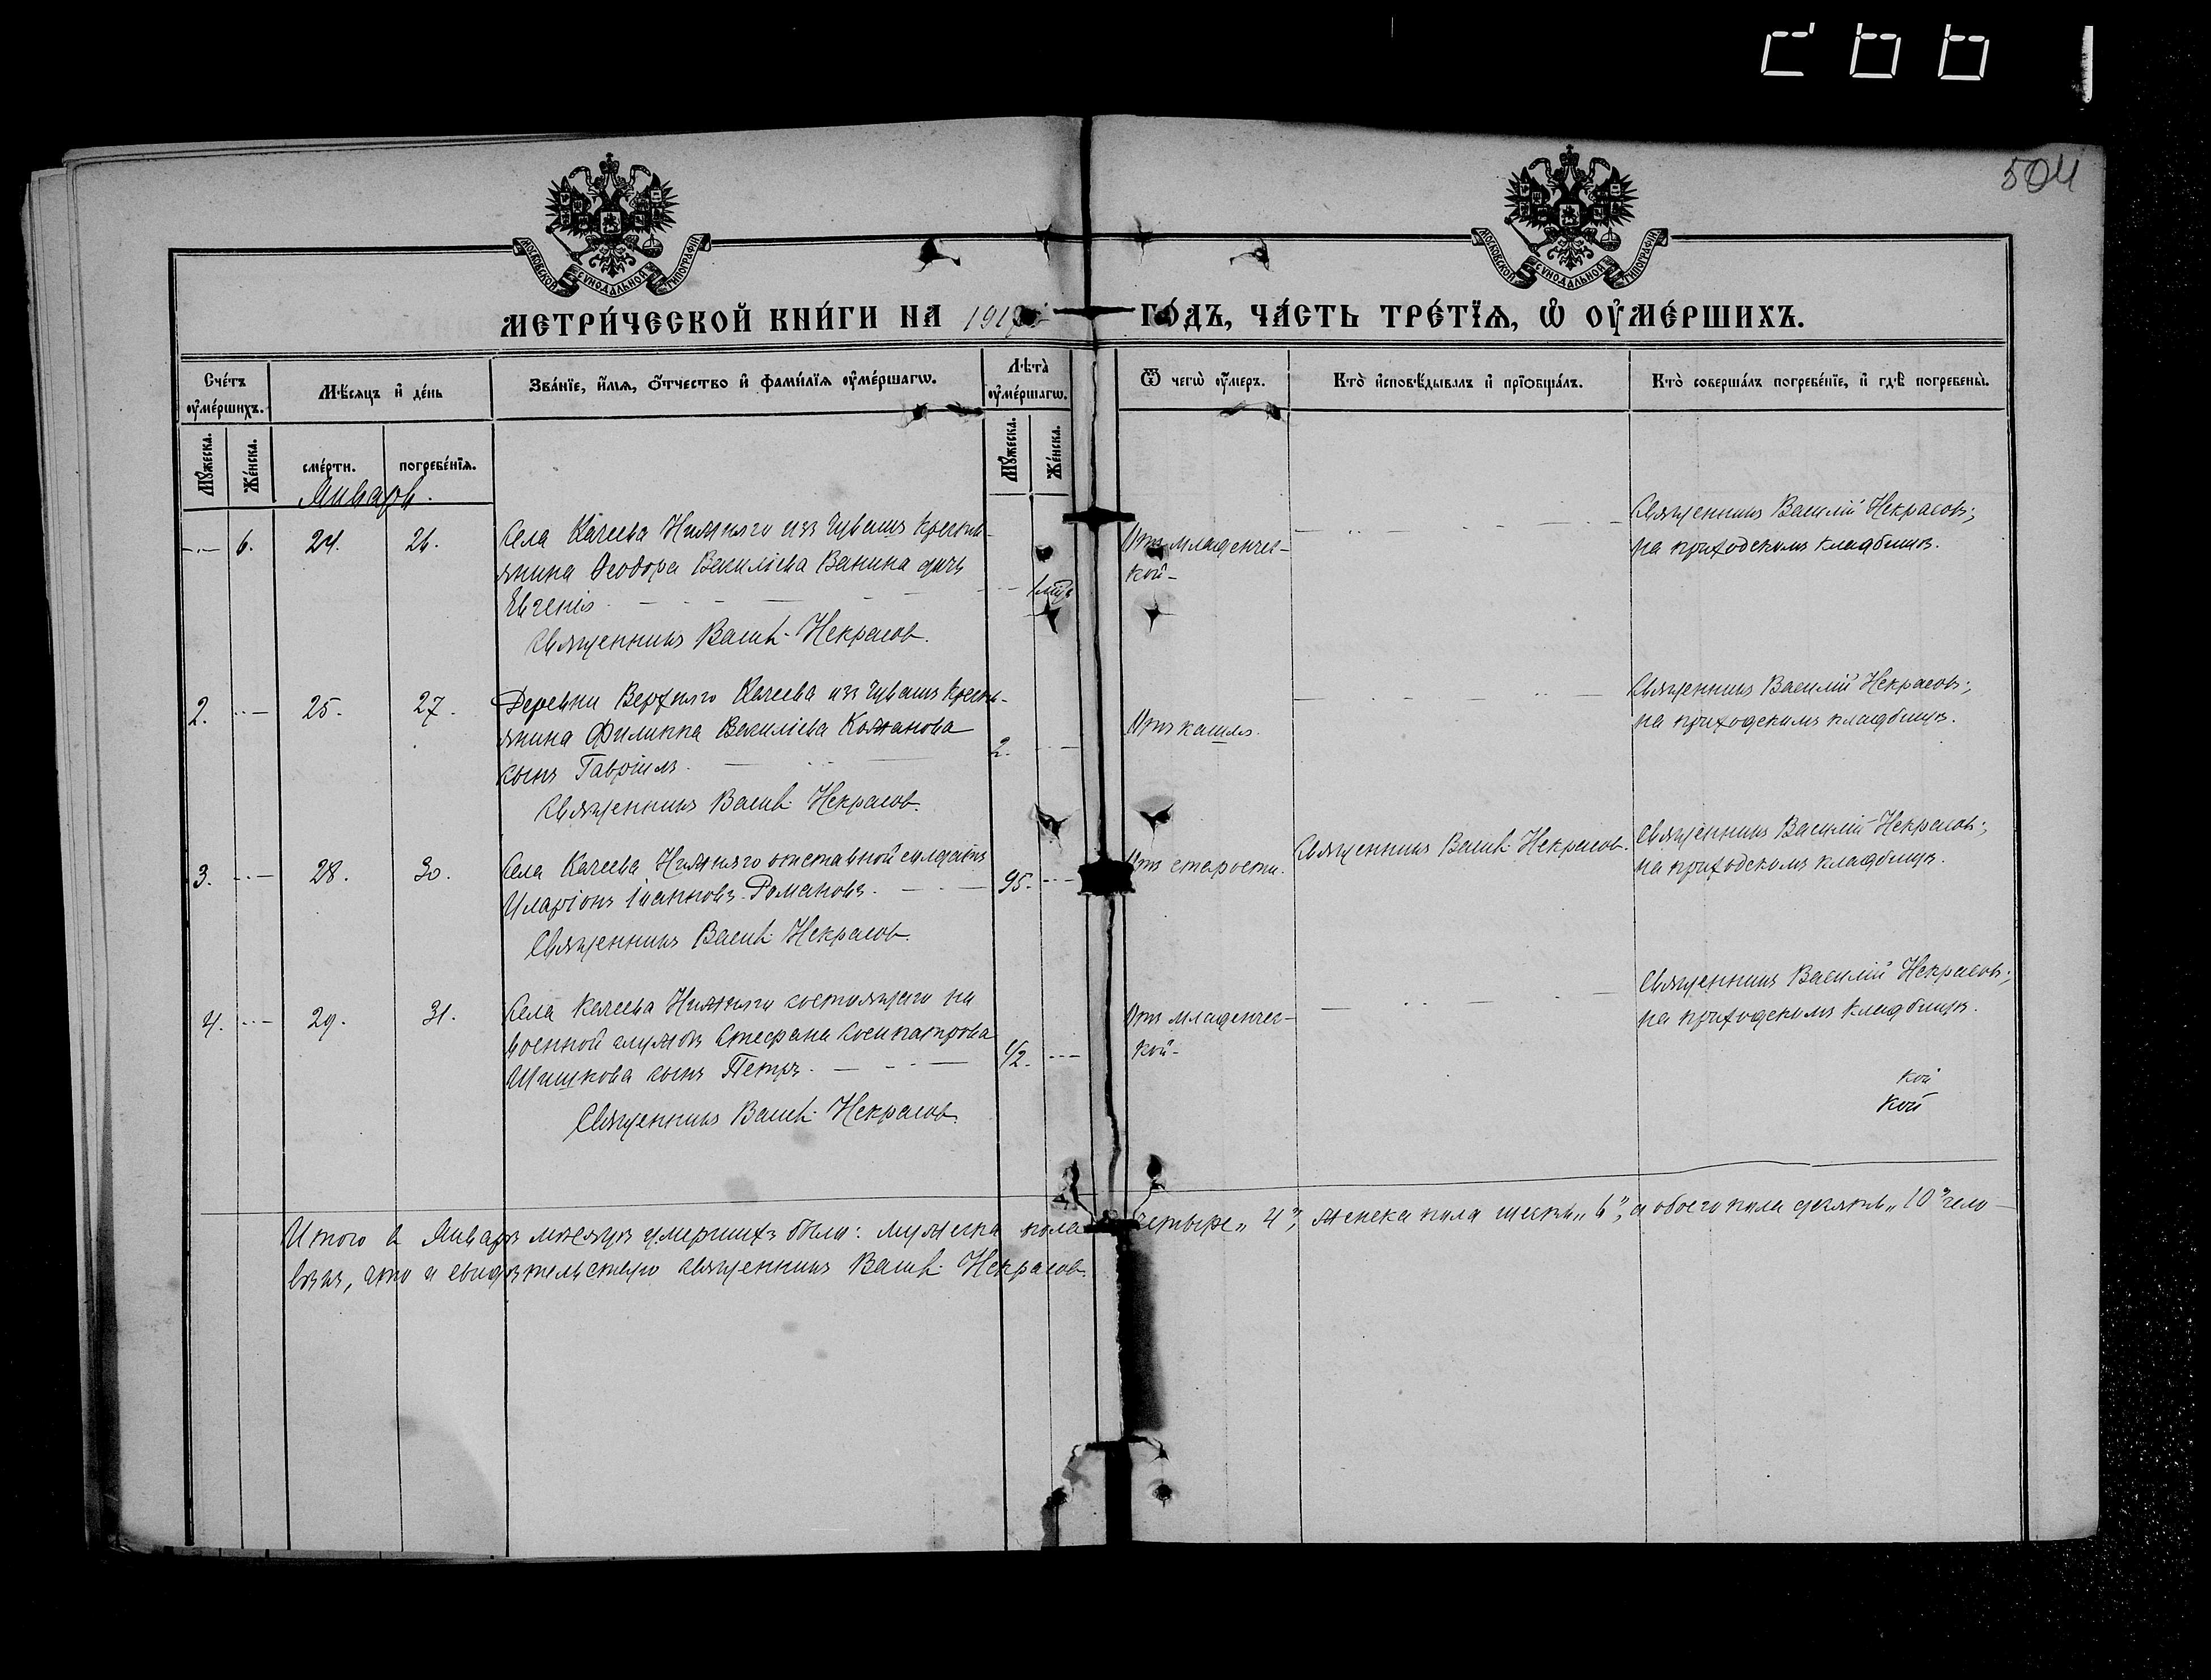 504
МОСКОВСКОЙ СУНОДАЛЬНОЙ ТИПОГРАФІИ
МОСКОВСКОЙ СУНОДАЛЬНОЙ ТИПОГРАФІИ
МЕТРИ́ЧЕСКОЙ КНИ́ГИ НА 191 ГО́ДЪ, ЧА́СТЬ ТРЕ́ТЇѦ, Ѡ҆ ОУ҆МЕ́РШИХЪ.
Сче́тъ оу҆ме́ршихъ.
Мѣ́сѧцъ и҆ де́нь
Зва́нїе, и҆́мѧ, ѻ҆́тчество и҆ фами́лїѧ оу҆ме́ршагѡ.
Лѣ́та̀ оу҆ме́ршагѡ.
Ѿ чегѡ̀ оу҆́меръ.
Кто̀ и҆сповѣ́дывалъ и҆ прїѡбща́лъ.
Кто̀ соверша́лъ погребе́нїе, и҆ гдѣ̀ погребены̀.
Мꙋ́жеска. Же́нска. сме́рти. погребе́нїѧ. Мꙋ́жеска. Же́нска.
Январь.
6. 24. 26. Села Качеева Нижняго изъ Чувашъ крестья-
янина Ѳеодора Василіева Ванина дочь
Евгенія
Священникъ Васил. Некрасов.
Отъ младенчес-
кой
Священникъ Василій Некрасовъ;
на приходскомъ кладбищѣ.
2. 25. 27. Деревни Верхняго Качеева изъ Чувашъ Кресть-
янина Филиппа Василіева
сынъ Гавріилъ
2.
Священникъ Васил. Некрасов.
Отъ кашля.
Священникъ Василій Некрасовъ;
на приходскомъ кладбищѣ.
3. 28. 30. Села Качеева Нижняго отставной солдатъ
Иларіонъ Іоанновъ Романовъ.
95.
Священникъ Васил. Некрасов.
Отъ старости.
Священникъ Васил. Некрасов.
Священникъ Василій Некрасовъ;
на приходскомъ кладбищѣ.
4. 29. 31. Села Качеева Нижняго состоящаго на
военной службѣ Стефана Сосипатрова
Шишкова сынъ Петръ.
1/2.
Священникъ Васил. Некрасов.
Отъ младенчес-
кой
Священникъ Василій Некрасовъ;
на приходскомъ кладбищѣ.
кой
кой
Итого в Январѣ мѣсяцѣ умершихъ было: мужеска пола четыре „4”, женска пола шесть „6”, а обоего пола десять „10” чело-
вѣкъ, что и свидѣтельствую священникъ Васил. Некрасов.